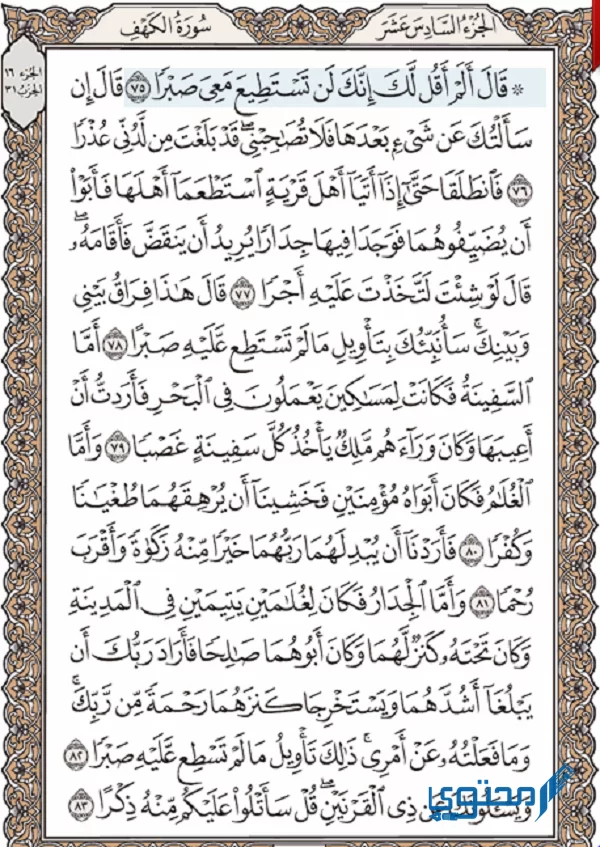 الجزء السادس عشر
سورة الكهف
الجزء ١٦
الحزب ٣١
۞ قَالَ أَلَمْ أَقُل لَّكَ إِنَّكَ لَن تَسْتَطِيعَ مَعِيَ صَبْرًا ٧٥ قَالَ إِن
سَأَلْتُكَ عَن شَيْءٍ بَعْدَهَا فَلَا تُصَاحِبْنِي ۖ قَدْ بَلَغْتَ مِن لَّدُنِّي عُذْرًا
٧٦ فَانطَلَقَا حَتَّىٰ إِذَا أَتَيَا أَهْلَ قَرْيَةٍ اسْتَطْعَمَا أَهْلَهَا فَأَبَوْا
أَن يُضَيِّفُوهُمَا فَوَجَدَا فِيهَا جِدَارًا يُرِيدُ أَن يَنقَضَّ فَأَقَامَهُ ۖ
قَالَ لَوْ شِئْتَ لَتَّخَذْتَ عَلَيْهِ أَجْرًا ٧٧ قَالَ هَٰذَا فِرَاقُ بَيْنِي
وَبَيْنِكَ ۚ سَأُنَبِّئُكَ بِتَأْوِيلِ مَا لَمْ تَسْتَطِع عَّلَيْهِ صَبْرًا ٧٨ أَمَّا
السَّفِينَةُ فَكَانَتْ لِمَسَاكِينَ يَعْمَلُونَ فِي الْبَحْرِ فَأَرَدتُّ أَنْ
أَعِيبَهَا وَكَانَ وَرَاءَهُم مَّلِكٌ يَأْخُذُ كُلَّ سَفِينَةٍ غَصْبًا ٧٩ وَأَمَّا
الْغُلَامُ فَكَانَ أَبَوَاهُ مُؤْمِنَيْنِ فَخَشِينَا أَن يُرْهِقَهُمَا طُغْيَانًا
وَكُفْرًا ٨٠ فَأَرَدْنَا أَن يُبْدِلَهُمَا رَبُّهُمَا خَيْرًا مِّنْهُ زَكَاةً وَأَقْرَبَ
رُحْمًا ٨١ وَأَمَّا الْجِدَارُ فَكَانَ لِغُلَامَيْنِ يَتِيمَيْنِ فِي الْمَدِينَةِ
وَكَانَ تَحْتَهُ كَنزٌ لَّهُمَا وَكَانَ أَبُوهُمَا صَالِحًا فَأَرَادَ رَبُّكَ أَن
يَبْلُغَا أَشُدَّهُمَا وَيَسْتَخْرِجَا كَنزَهُمَا رَحْمَةً مِّن رَّبِّكَ ۚ
وَمَا فَعَلْتُهُ عَنْ أَمْرِي ۚ ذَٰلِكَ تَأْوِيلُ مَا لَمْ تَسْطِع عَّلَيْهِ صَبْرًا ٨٢
وَيَسْأَلُونَكَ عَن ذِي الْقَرْنَيْنِ ۖ قُلْ سَأَتْلُو عَلَيْكُم مِّنْهُ ذِكْرًا ٨٣
محتوى